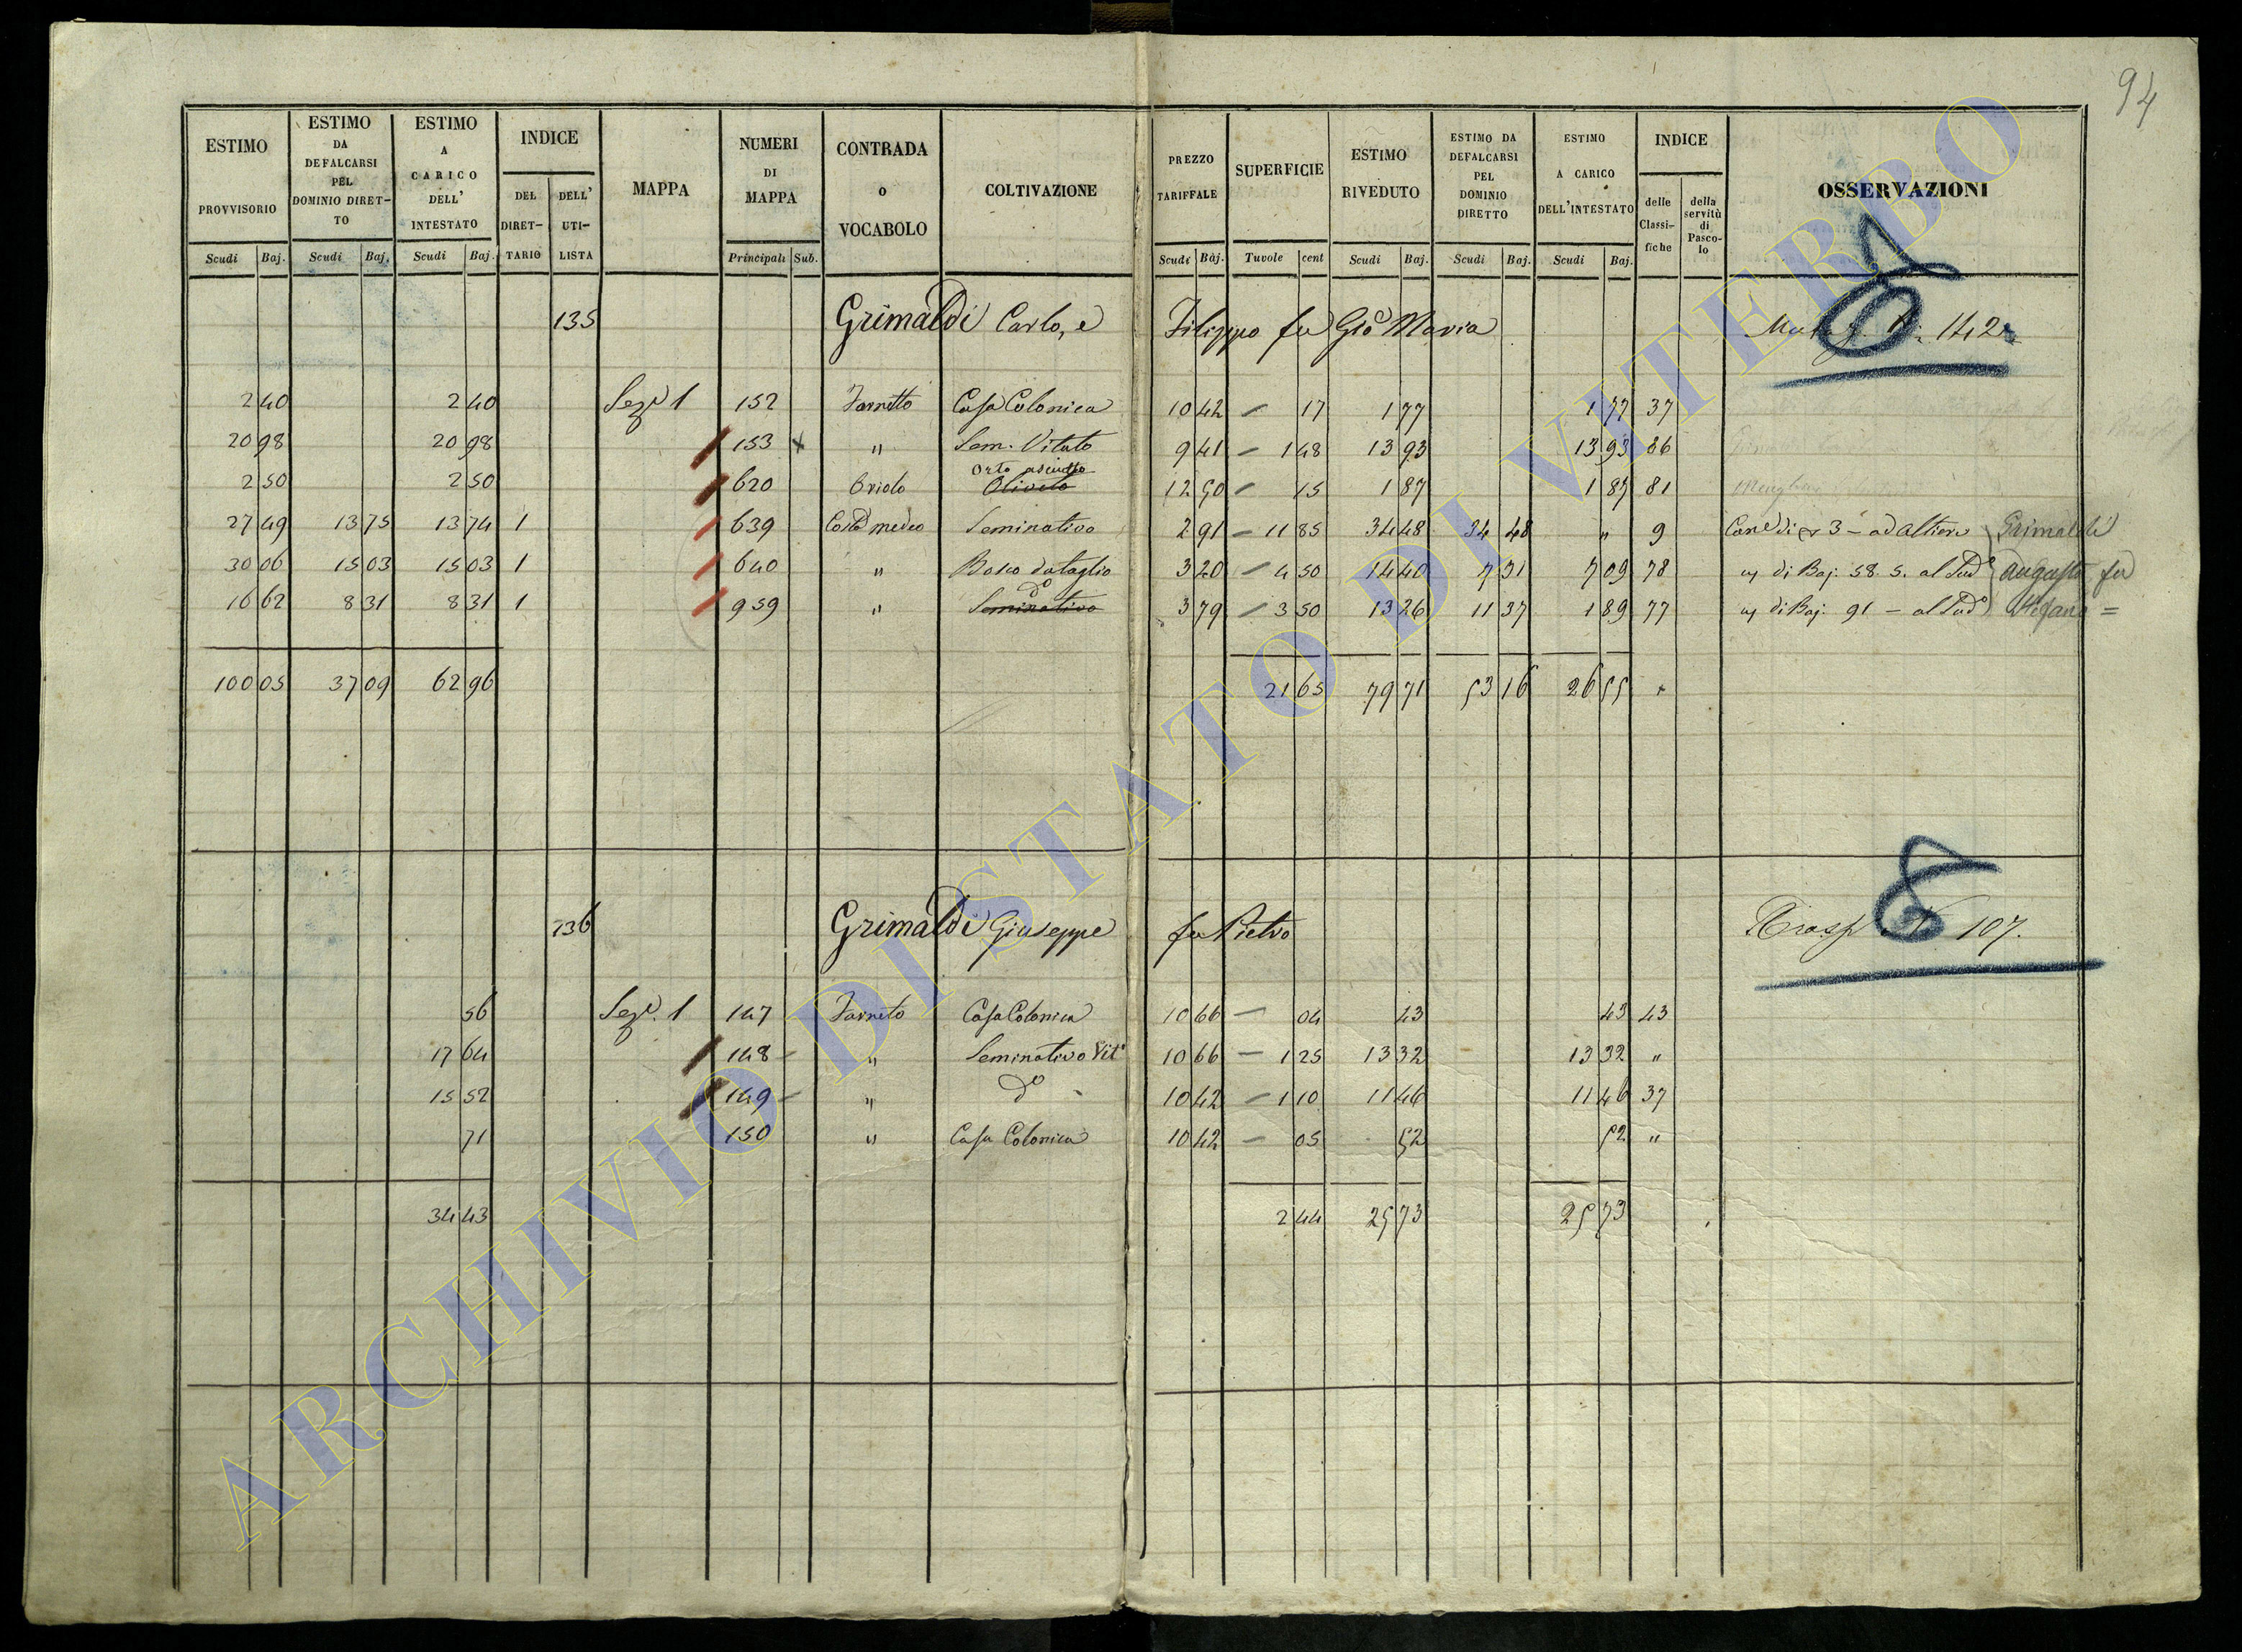 94
ESTIMO PROVVISORIO Scudi Baj.
ESTIMO DA DEFALCARSI PEL DOMINIO DIRET-TO Scudi Baj.
ESTIMO A CARICO DELL' INTESTATO Scudi Baj.
INDICE DEL DIRET-TARIO DELL' UTI-LISTA
MAPPA
NUMERI DI MAPPA Principali Sub.
CONTRADA o VOCABOLO
COLTIVAZIONE
PREZZO TARIFFALE Scudi Baj.
SUPERFICIE Tavole cent
ESTIMO RIVEDUTO Scudi Baj.
ESTIMO DA DEFALCARSI PEL DOMINIO DIRETTO Scudi Baj.
ESTIMO A CARICO DELL'INTESTATO Scudi Baj.
INDICE delle Classi-fiche della servitù di Pasco-lo
OSSERVAZIONI
135 Grimaldi Carlo, e Filippo fu Gio Maria 142
2 40 2 40 Seze 1 152 Farneto Casa Colonica 10 42 – 17 1 77 1 77 37
20 98 20 98 153 x " Sem. Vitato 9 41 – 1 48 13 93 13 93 36
Orto asciutto
2 50 2 50 620 Oriolo Oliveto 12 50 – 15 1 87 1 87 81
27 49 13 75 13 74 1 639 Seminativo 2 91 – 11 85 34 48 34 48 " 9 Grimaldi
30 06 15 03 15 03 1 640 " Bosco da taglio 3 20 – 4 50 14 40 7 31 7 09 78 di Baj. 58. 5. al Sudo Augusto fu
do
16 62 8 31 8 31 1 959 " Seminativo 3 79 – 3 50 13 26 11 37 1 89 77 di Baj. 91 – al Sudo Stefano =
100 05 37 09 62 96 21 65 79 71 53 16 26 55
136 Grimaldi Giuseppe fu Pietro Trasp N 107.
56 Seze. 1 147 Farneto Casa Colonica 10 66 – 04 43 43 43
17 64 148 – " Seminativo Vito 10 66 – 1 25 13 32 13 32 "
15 52 149 – " do 10 42 – 1 10 11 46 11 46 37
71 150 " Casa Colonica 10 42 – 05 52 52 "
34 43 2 44 25 73 25 73
ARCHIVIO DI STATO DI VITERBO